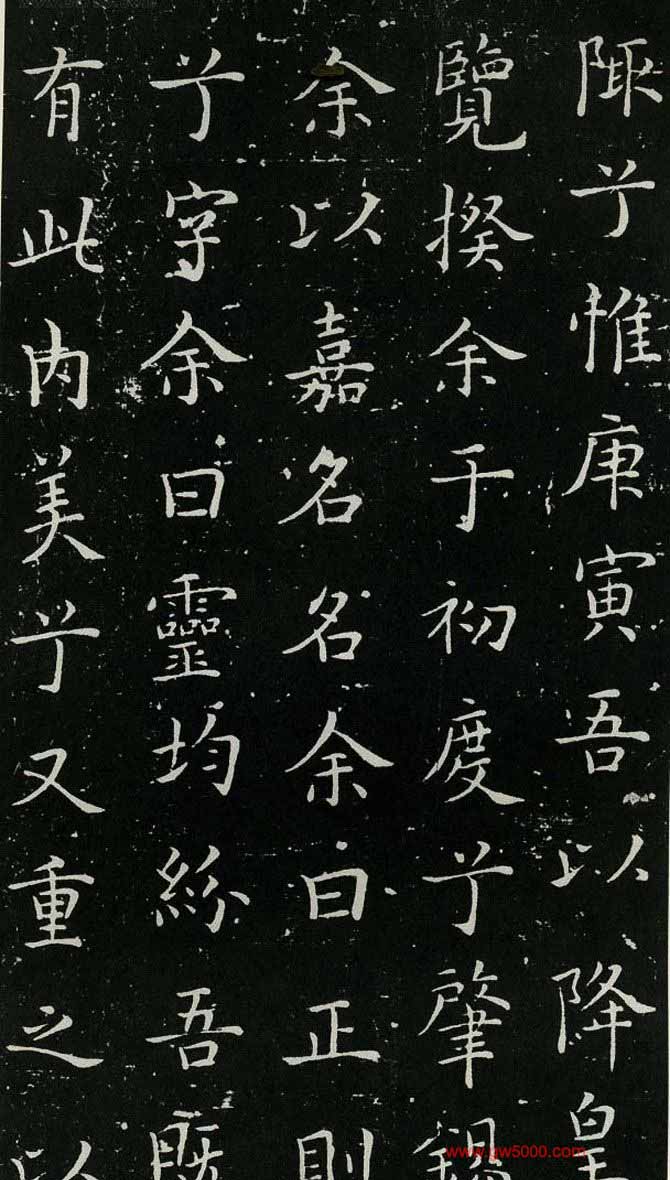 陬兮惟庚寅吾以降皇
覽揆余于初度兮肇錫
余以嘉名名余曰正則
兮字余曰靈均紛吾既
有此内美兮又重之以
www.gw5000.com